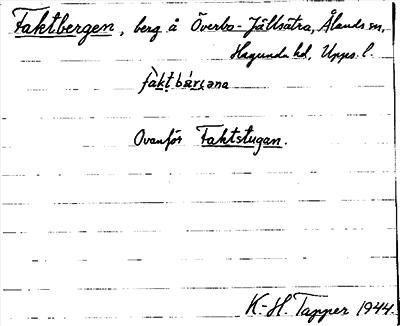 Faktbergen, berg å Överbo-Jällsätra, Ålands sn,
Hagunda hd, Upps. l.
fàktbær̨ana
Ovanför Faktstugan.
K.-H. Tapper 1944.